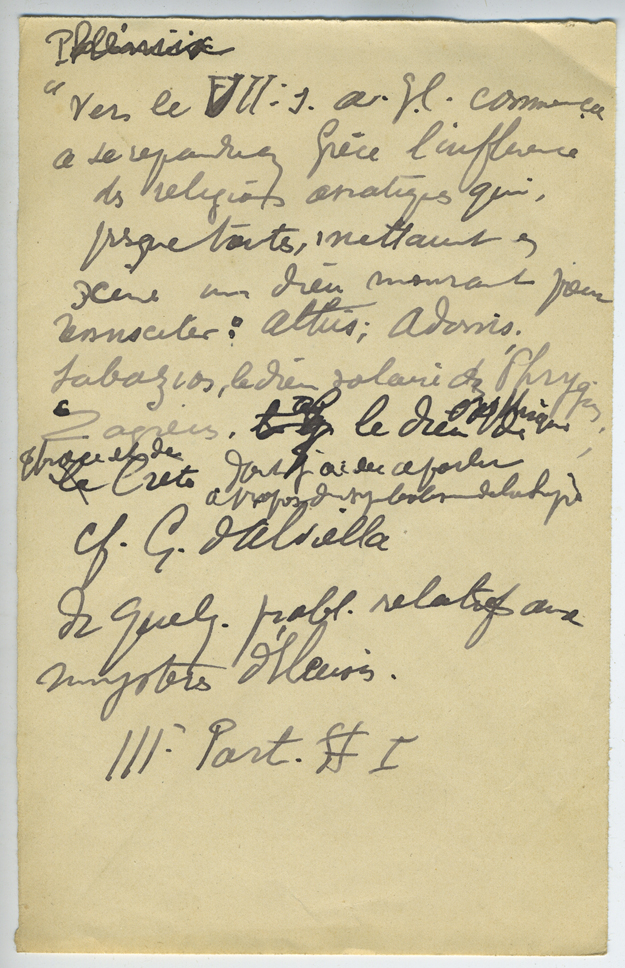 "Vers le VII: s. av. J.C. commença
a se repandre en Grèce l'influence
des religions asiatiques qui,
presque toutes, mettaient en
scène un dieu mourant pour
ressusciter: Attis; Adonis,
Sabazios, le dieu solaire de Phrygie,
Zagreus, le dieu orphique
de la Crete dont j'ai eu a parler
a propos du symbolisme de la
cf. G. d'Alviella
De Quelq. probl. relatifs aux
mysteres d'Eleusis.
III Part. § I